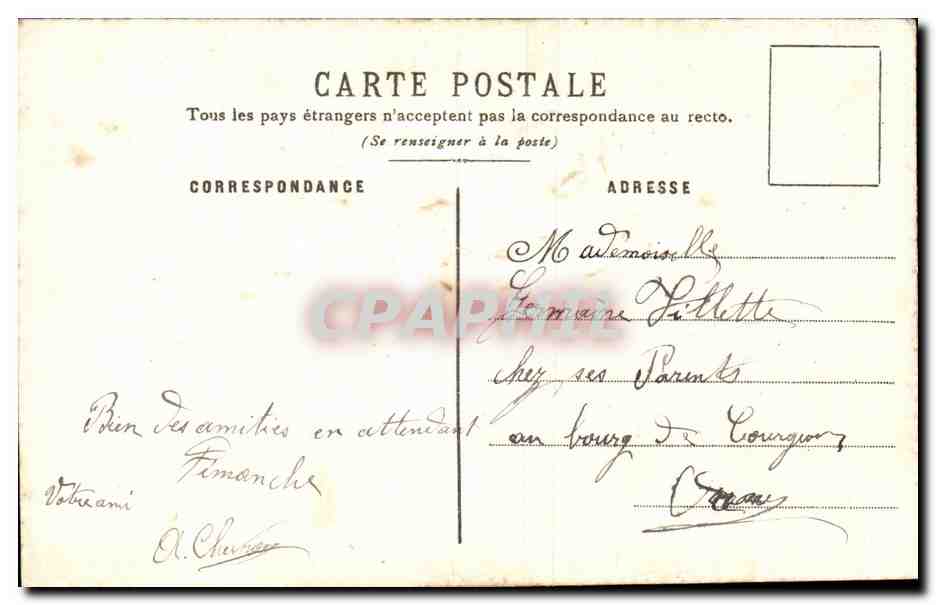 CARTE POSTALE
Tous les pays étrangers n'acceptent pas la correspondance au recto.
(Se renseigner à la poste)
CORRESPONDANCE
ADRESSE
Mademoiselle
Germaine Villette
chez ses Parents
au bourg de
CPAPHIL
Bien des amitiés en attendant
Dimanche
Votre ami
A.